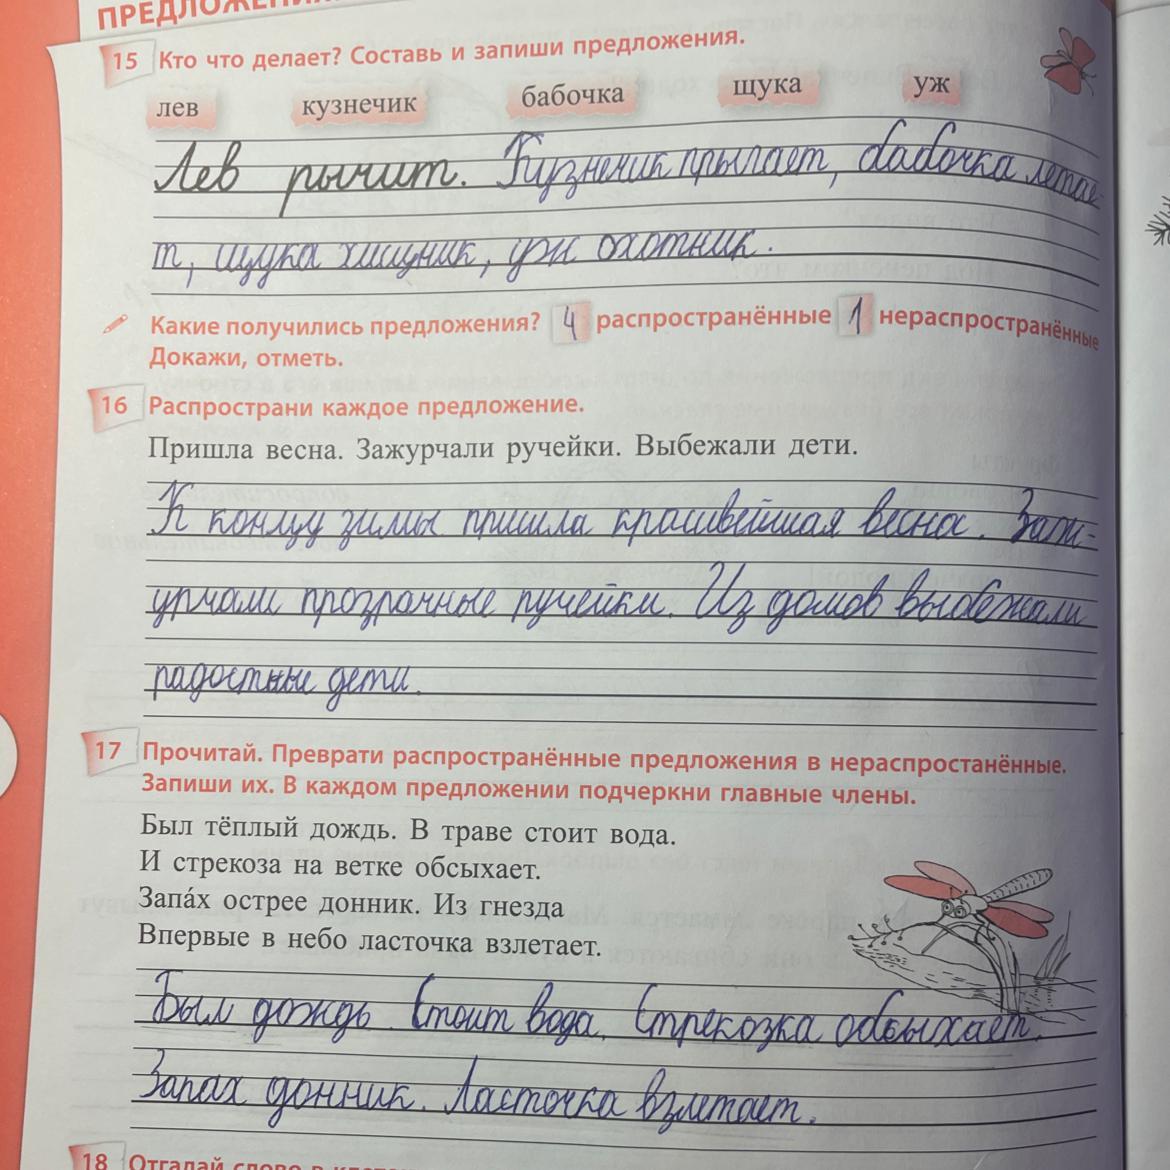 ПРЕДЛОЖЕНИ
15 Кто что делает? Составь и запиши предложения.
лев кузнечик бабочка щука уж
Лев рычит. Кузнечик прыгает, бабочка летае-
т, щука хищник, уж охотник.
Какие получились предложения? 4 распространённые 1 нераспространённые
Докажи, отметь.
16 Распространи каждое предложение.
Пришла весна. Зажурчали ручейки. Выбежали дети.
К концу зимы пришла красивейшая весна. Заж-
урчали прозрачные ручейки. Из домов выбежали
радостные дети.
17 Прочитай. Преврати распространённые предложения в нераспростанённые.
Запиши их. В каждом предложении подчеркни главные члены.
Был тёплый дождь. В траве стоит вода.
И стрекоза на ветке обсыхает.
Запа́х острее донник. Из гнезда
Впервые в небо ласточка взлетает.
Был дождь. Стоит вода. Стрекозка обсыхает.
Запах донник. Ласточка взлетает.
18 Отгадай слово